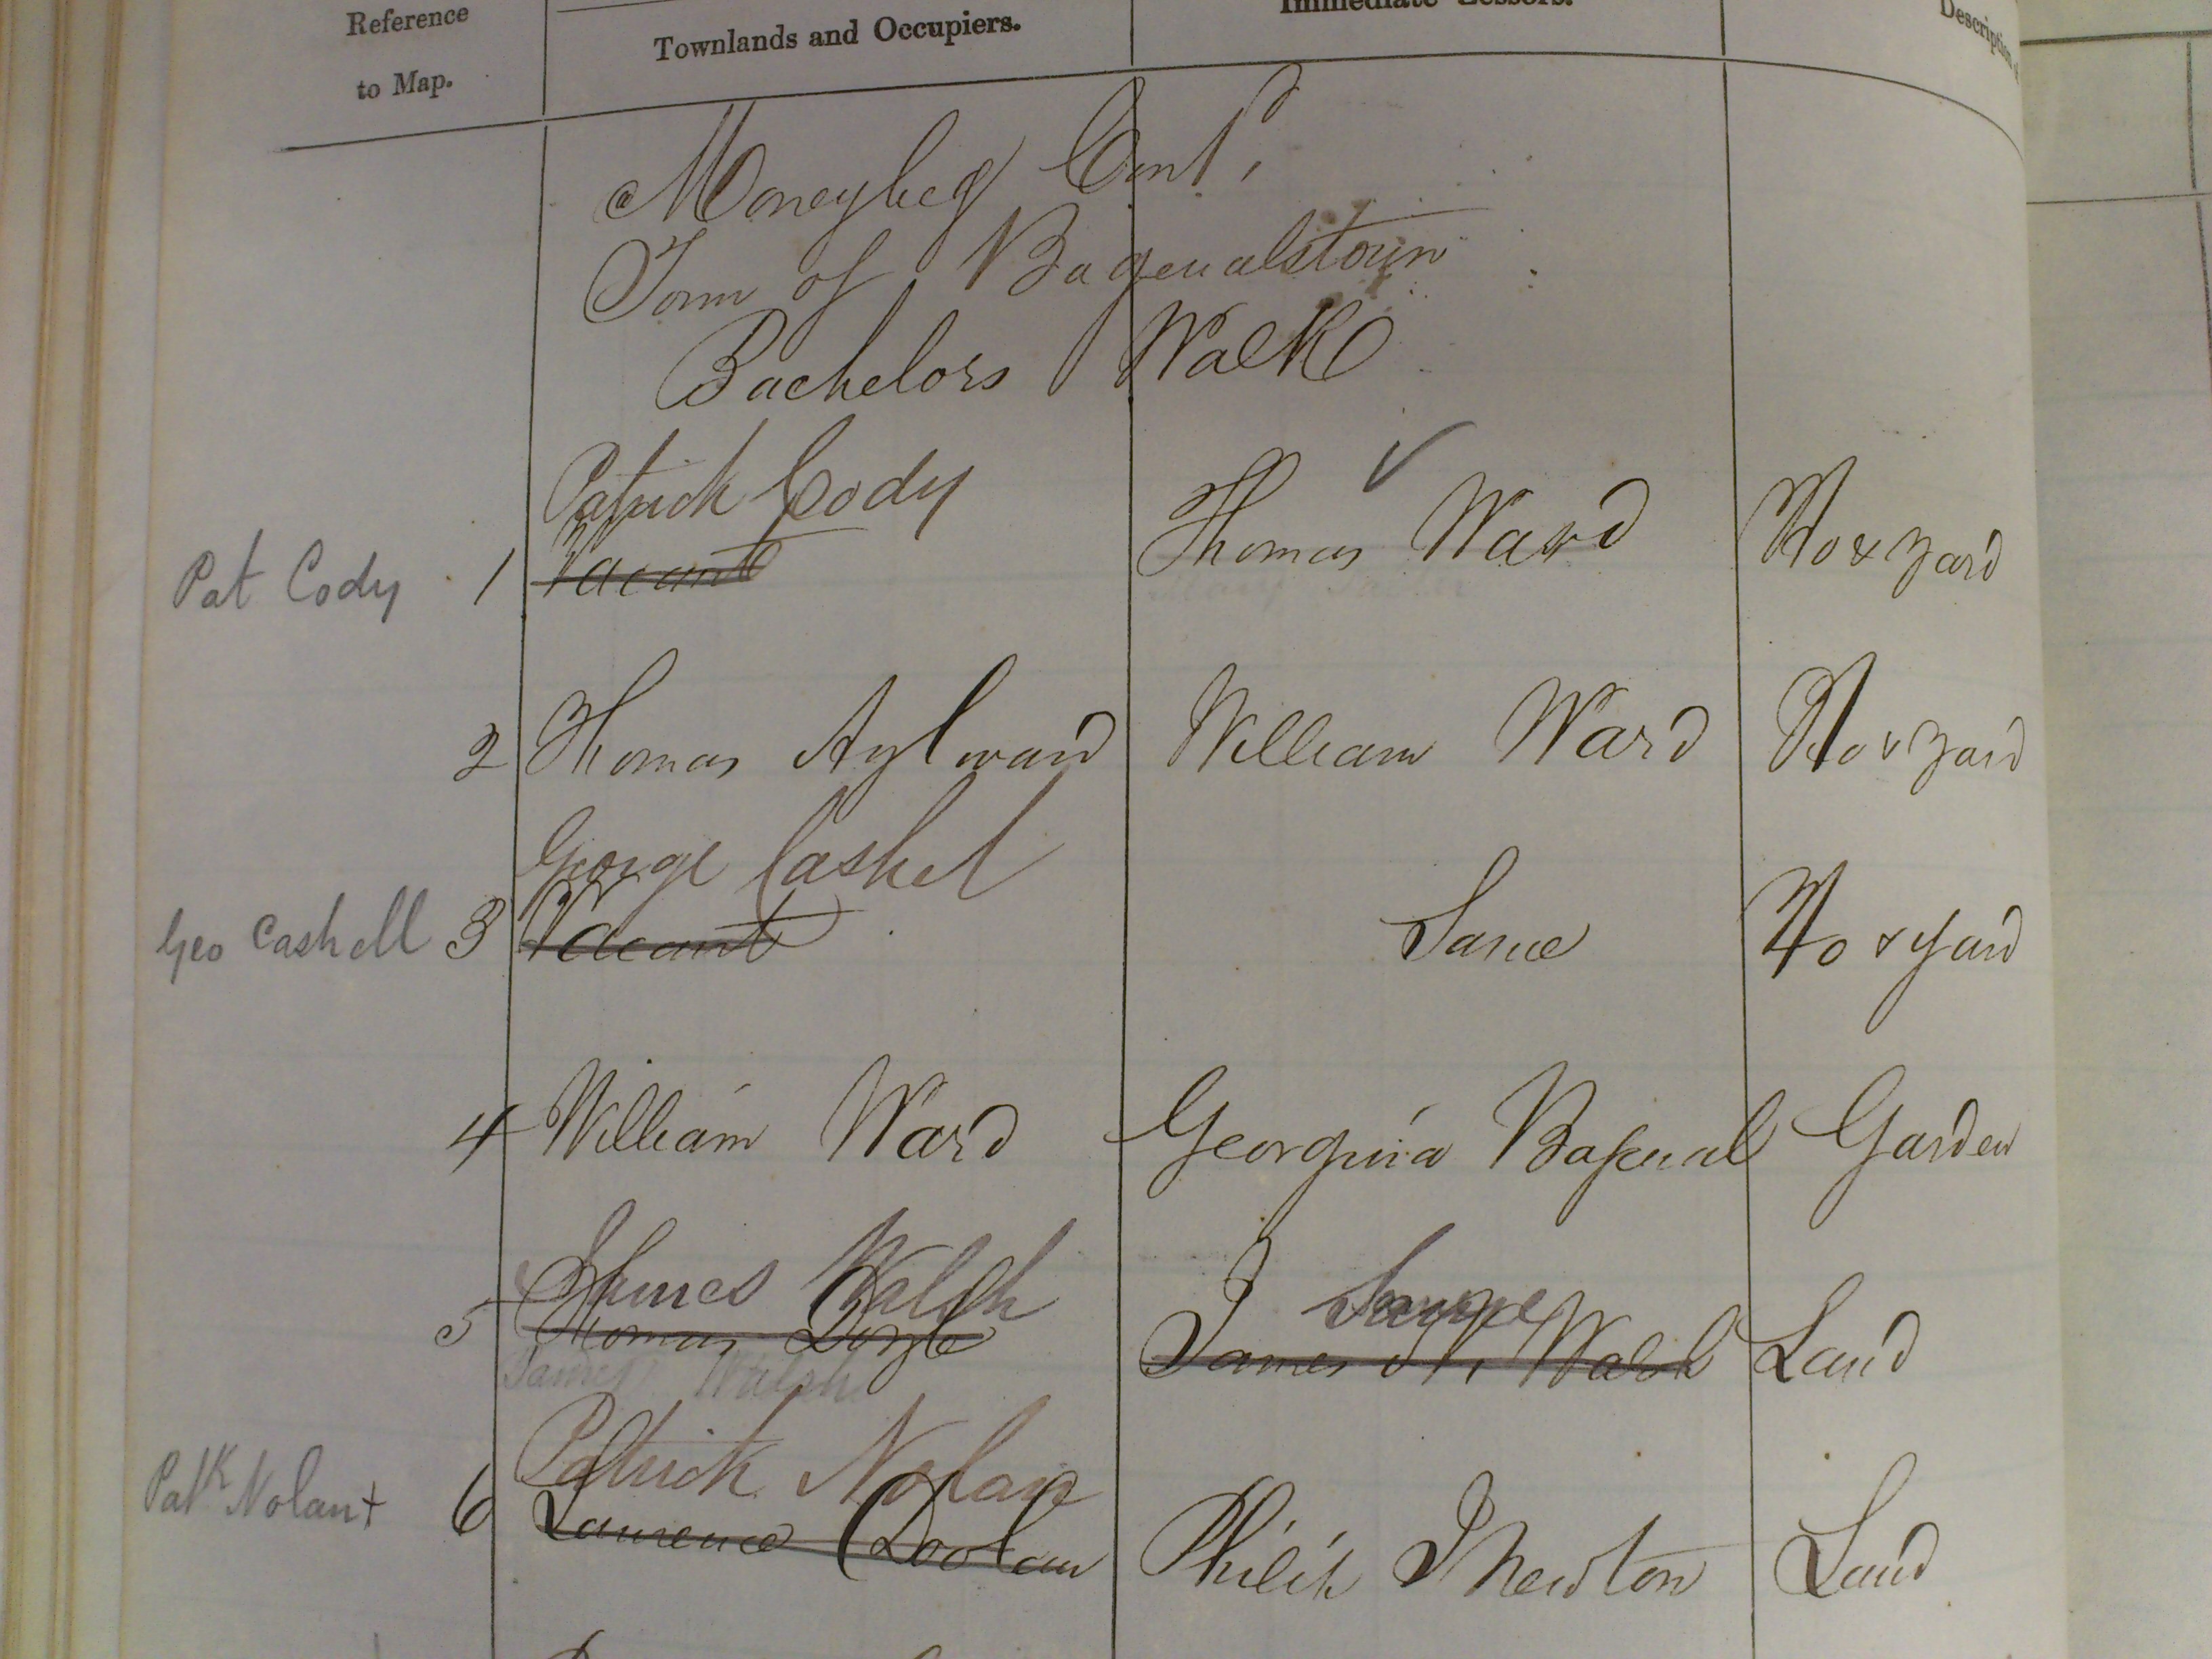 Reference to Map.
Townlands and Occupiers.
Immediate Lessors.
Description
Moneybeg Cont.d
Town of Bagenalstown
Bachelors Walk
Patrick Cody
Pat Cody 1 Vacant Thomas Ward Ho & Yard
2 Thomas Aylward William Ward Ho & Yard
George Cashel
Geo Cashell 3 Vacant Same Ho & Yard
4 William Ward Georgina Bagenal Garden
James Walsh Same
5 Thomas Doyle James H. Walsh Land
James Walsh
Patrick Nolan
Patk Nolan + 6 Laurence Doolan Philip J Newton Land